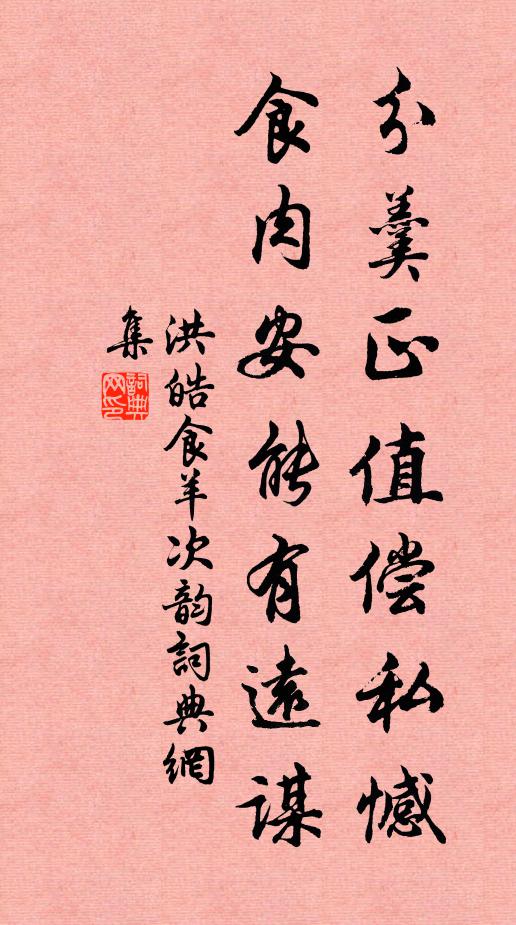 分羹正值偿私憾
食肉安能有遠谋
洪皓食羊次韵詞典網
集
詞典网印